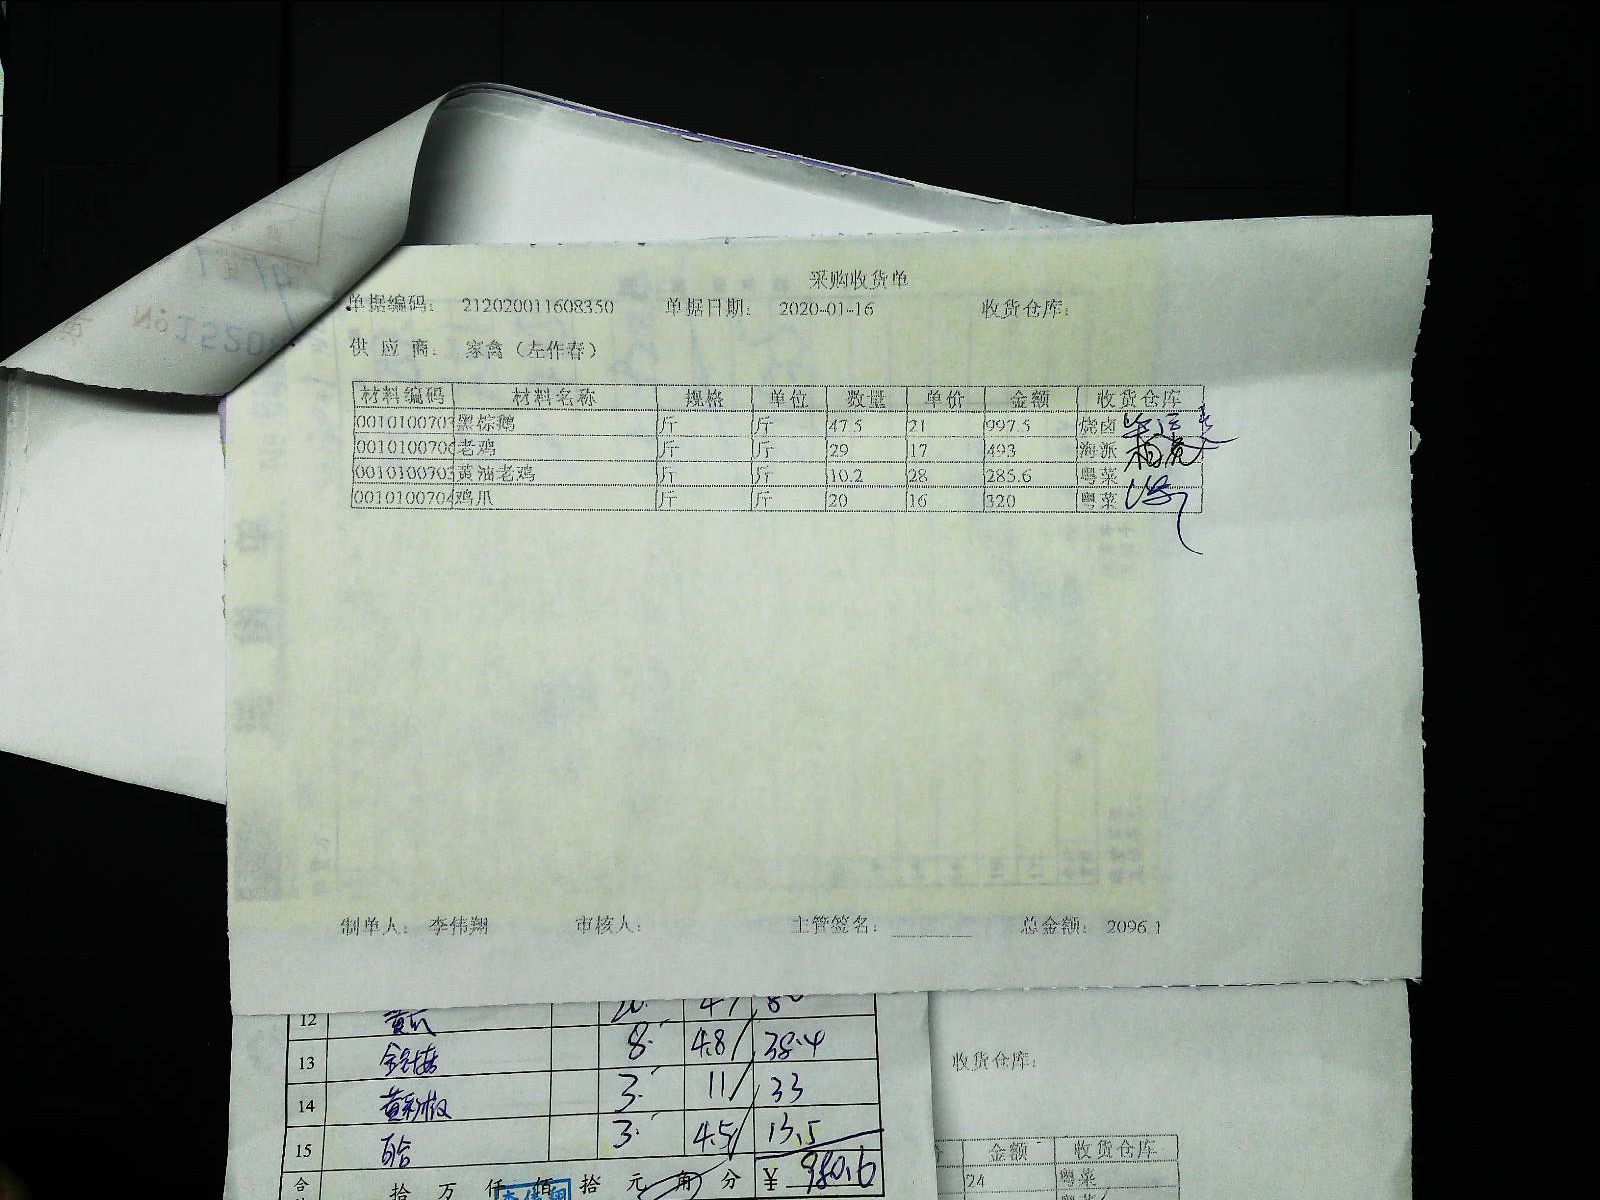 采购收货单
单据编码: 212020011608350 单据日期: 2020-01-16 收货仓库:
供 应 商: 家禽（左作春）
材料编码 材料名称 规格 单位 数量 单价 金额 收货仓库
0010100703 黑棕鹅 斤 斤 47.5 21 997.5 烧卤
0010100706 老鸡 斤 斤 29 17 493 海派
0010100703 黄油老鸡 斤 斤 10.2 28 285.6 粤菜
0010100704 鸡爪 斤 斤 20 16 320 粤菜
制单人: 李伟翔 审核人: 主管签名: 总金额: 2096.1
12 黄瓜
13 金针菇 8. 4.8 38.4
14 黄彩椒 3. 11 33
15 百合 3. 4.5 13.5
合 拾 万 仟 佰 拾 元 角 分 ¥ 980.6
收货仓库:
金额 收货仓库
24 粤菜